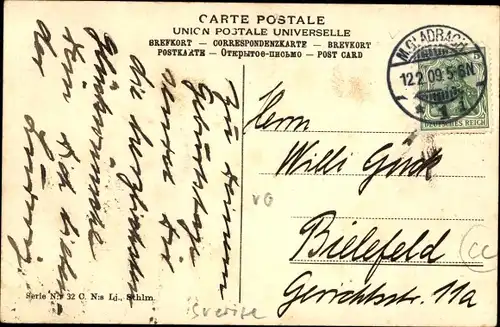 CARTE POSTALE
UNION POSTALE UNIVERSELLE
BREFKORT — CORRESPONDENZKARTE — BREVKORT
POSTKARTE — Открытое-письмо — POST CARD
M.GLADBACH
12.2.09.5-6N
DEUTSCHES REICH
Zu Deinem
Geburtstage
sendet Dir
die herzlichsten
Glückwünsche
Dein Dich
der
Herrn
Willi
Bielefeld
Gerichtsstr. 11a
VG
Serie N:r 32 C. N:s Ld., Sthlm.